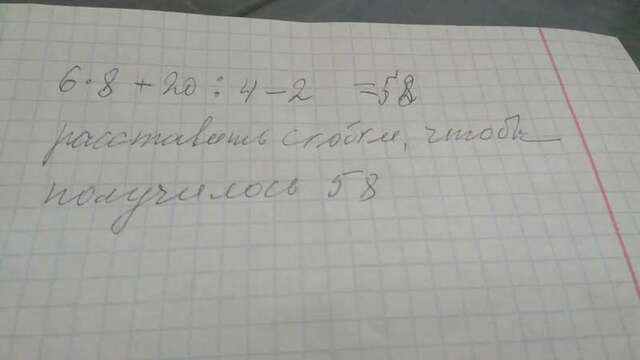 6·8+20:4-2 =58
расставить скобки, чтобы
получилось 58